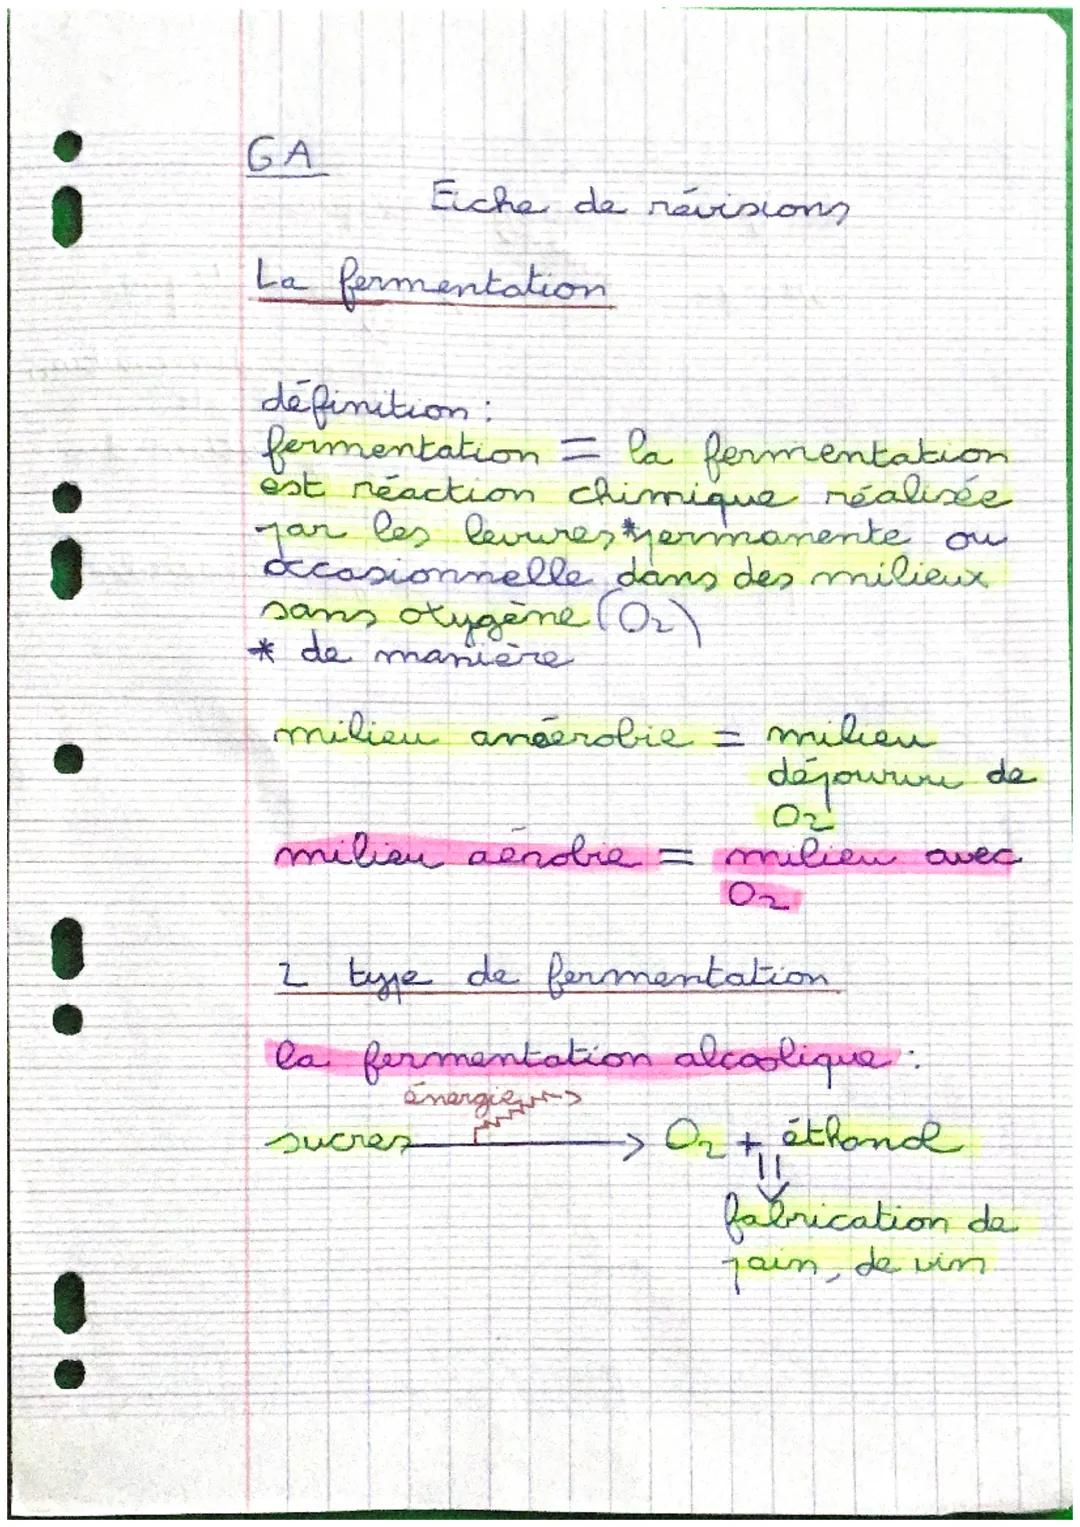 GA
Fiche de révisions
La fermentation
définition :
fermentation = la fermentation
est réaction chimique réalisée
par les levures *permanente ou
occasionnelle dans des milieux
sans oxygène (O2)
* de manière
milieu anaérobie = milieu
dépourvu de
O2
milieu aérobie = milieu avec
O2
2 type de fermentation
la fermentation alcoolique :
énergie
sucres → O2 + éthanol
⇓
fabrication de
pain, de vin